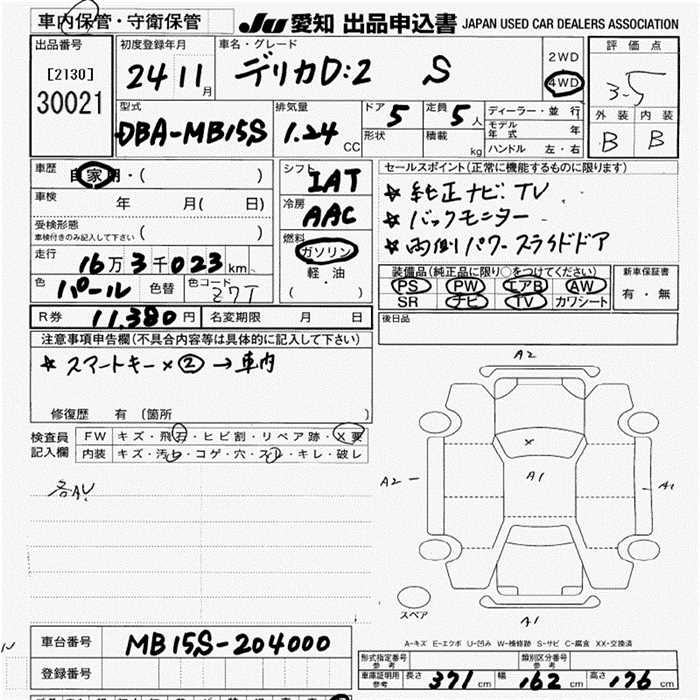 車内保管・守衛保管
JU 愛知 出品申込書 JAPAN USED CAR DEALERS ASSOCIATION
出品番号
[2130]
30021
初度登録年月
24 11月
車名・グレード
デリカD:2 S
2WD
4WD
評価点
3.5
外装 内装
B B
型式
DBA-MB15S
排気量
1.24 CC
ドア 5
定員 5人
形状
積載 kg
ディーラー・並行
モデル年式 年
ハンドル 左・右
車歴
自家用・( )
車検 年 月( 日)
受検形態
車検付きのみ記入して下さい ( )
走行
16万3千023km
色 パール 色替 色コード Z7T
シフト
IAT
冷房
AAC
燃料
ガソリン
軽・油
( )
セールスポイント(正常に機能するものに限ります)
★純正ナビ・TV
★バックモニター
★両側パワースライドドア
装備品(純正品に限り○をつけてください)
PS PW エアB AW
SR ナビ TV カワシート
新車保証書
有・無
R券 11,380円 名変期限 月 日
後日品
注意事項申告欄(不具合内容等は具体的に記入して下さい)
★スマートキー×② → 車内
修復歴 有 (箇所 )
検査員記入欄
FW キズ・飛石・ヒビ割・リペア跡・X要
内装 キズ・汚れ・コゲ・穴・スレ・キレ・破レ
各AU
A2
X
A1
A2
A1
スペア
A1
A-キズ E-エクボ U-凹み W-補修跡 S-サビ C-腐食 XX-交換済
車台番号 MB15S-204000
登録番号
型式指定番号参考
類別区分番号参考
車庫証明用参考 長さ 371cm 幅 162cm 高さ 176cm